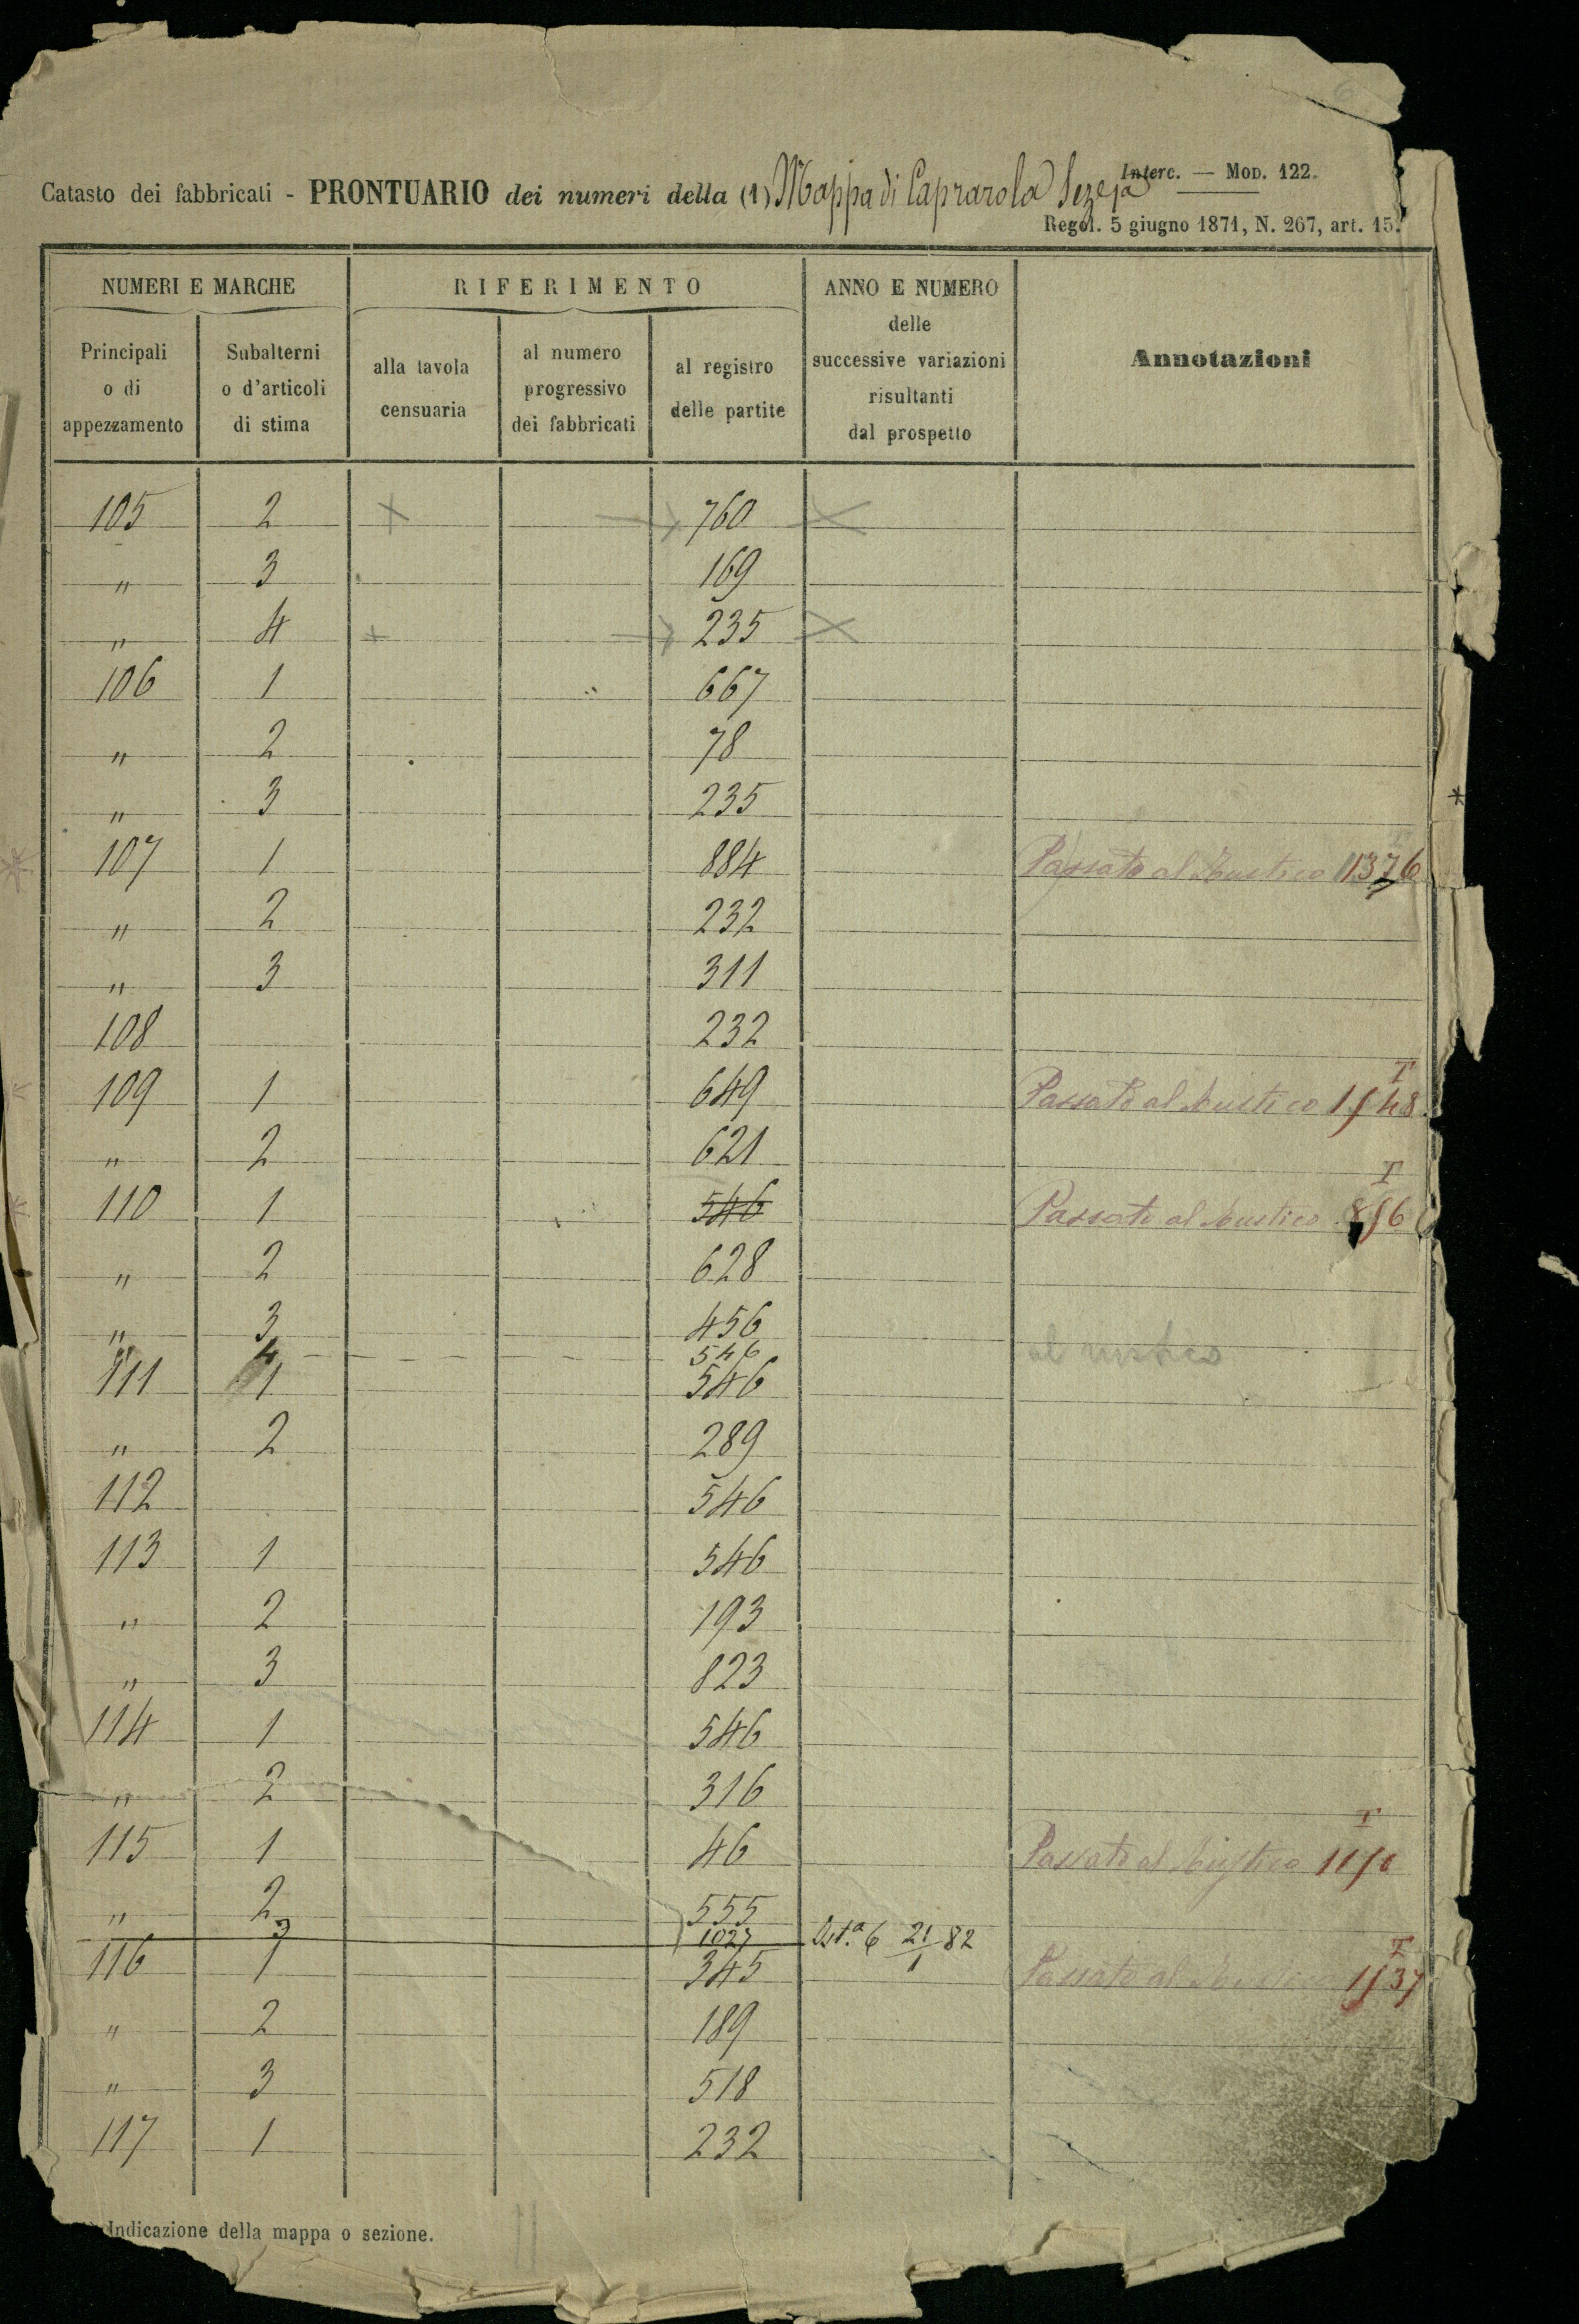 Interc. — Mod. 122.
Catasto dei fabbricati - PRONTUARIO dei numeri della (1) Mappa di Caprarola
Regol. 5 giugno 1871, N. 267, art. 15.
NUMERI E MARCHE RIFERIMENTO ANNO E NUMERO delle successive variazioni risultanti dal prospetto Annotazioni
Principali o di appezzamento Subalterni o d'articoli di stima alla tavola censuaria al numero progressivo dei fabbricati al registro delle partite
105 2 760
" 3 169
" 4 235
106 1 667
" 2 78
" 3 235
107 1 884 Passato al Rustico 1376
" 2 232
" 3 311
108 232
109 1 649 Passato al Rustico 1/48
" 2 621
110 1 546 Passato al Rustico
" 2 628
" 3 456
" 4 546 al rustico
111 1 546
" 2 289
112 546
113 1 546
" 2 193
" 3 823
114 1 546
" 2 316
115 1 46 Passato al Rustico
" 2 555
3 1027 6 21/1 82
116 1 345 Passato al Rustico 1/37
" 2 189
" 3 518
117 1 232
Indicazione della mappa o sezione.